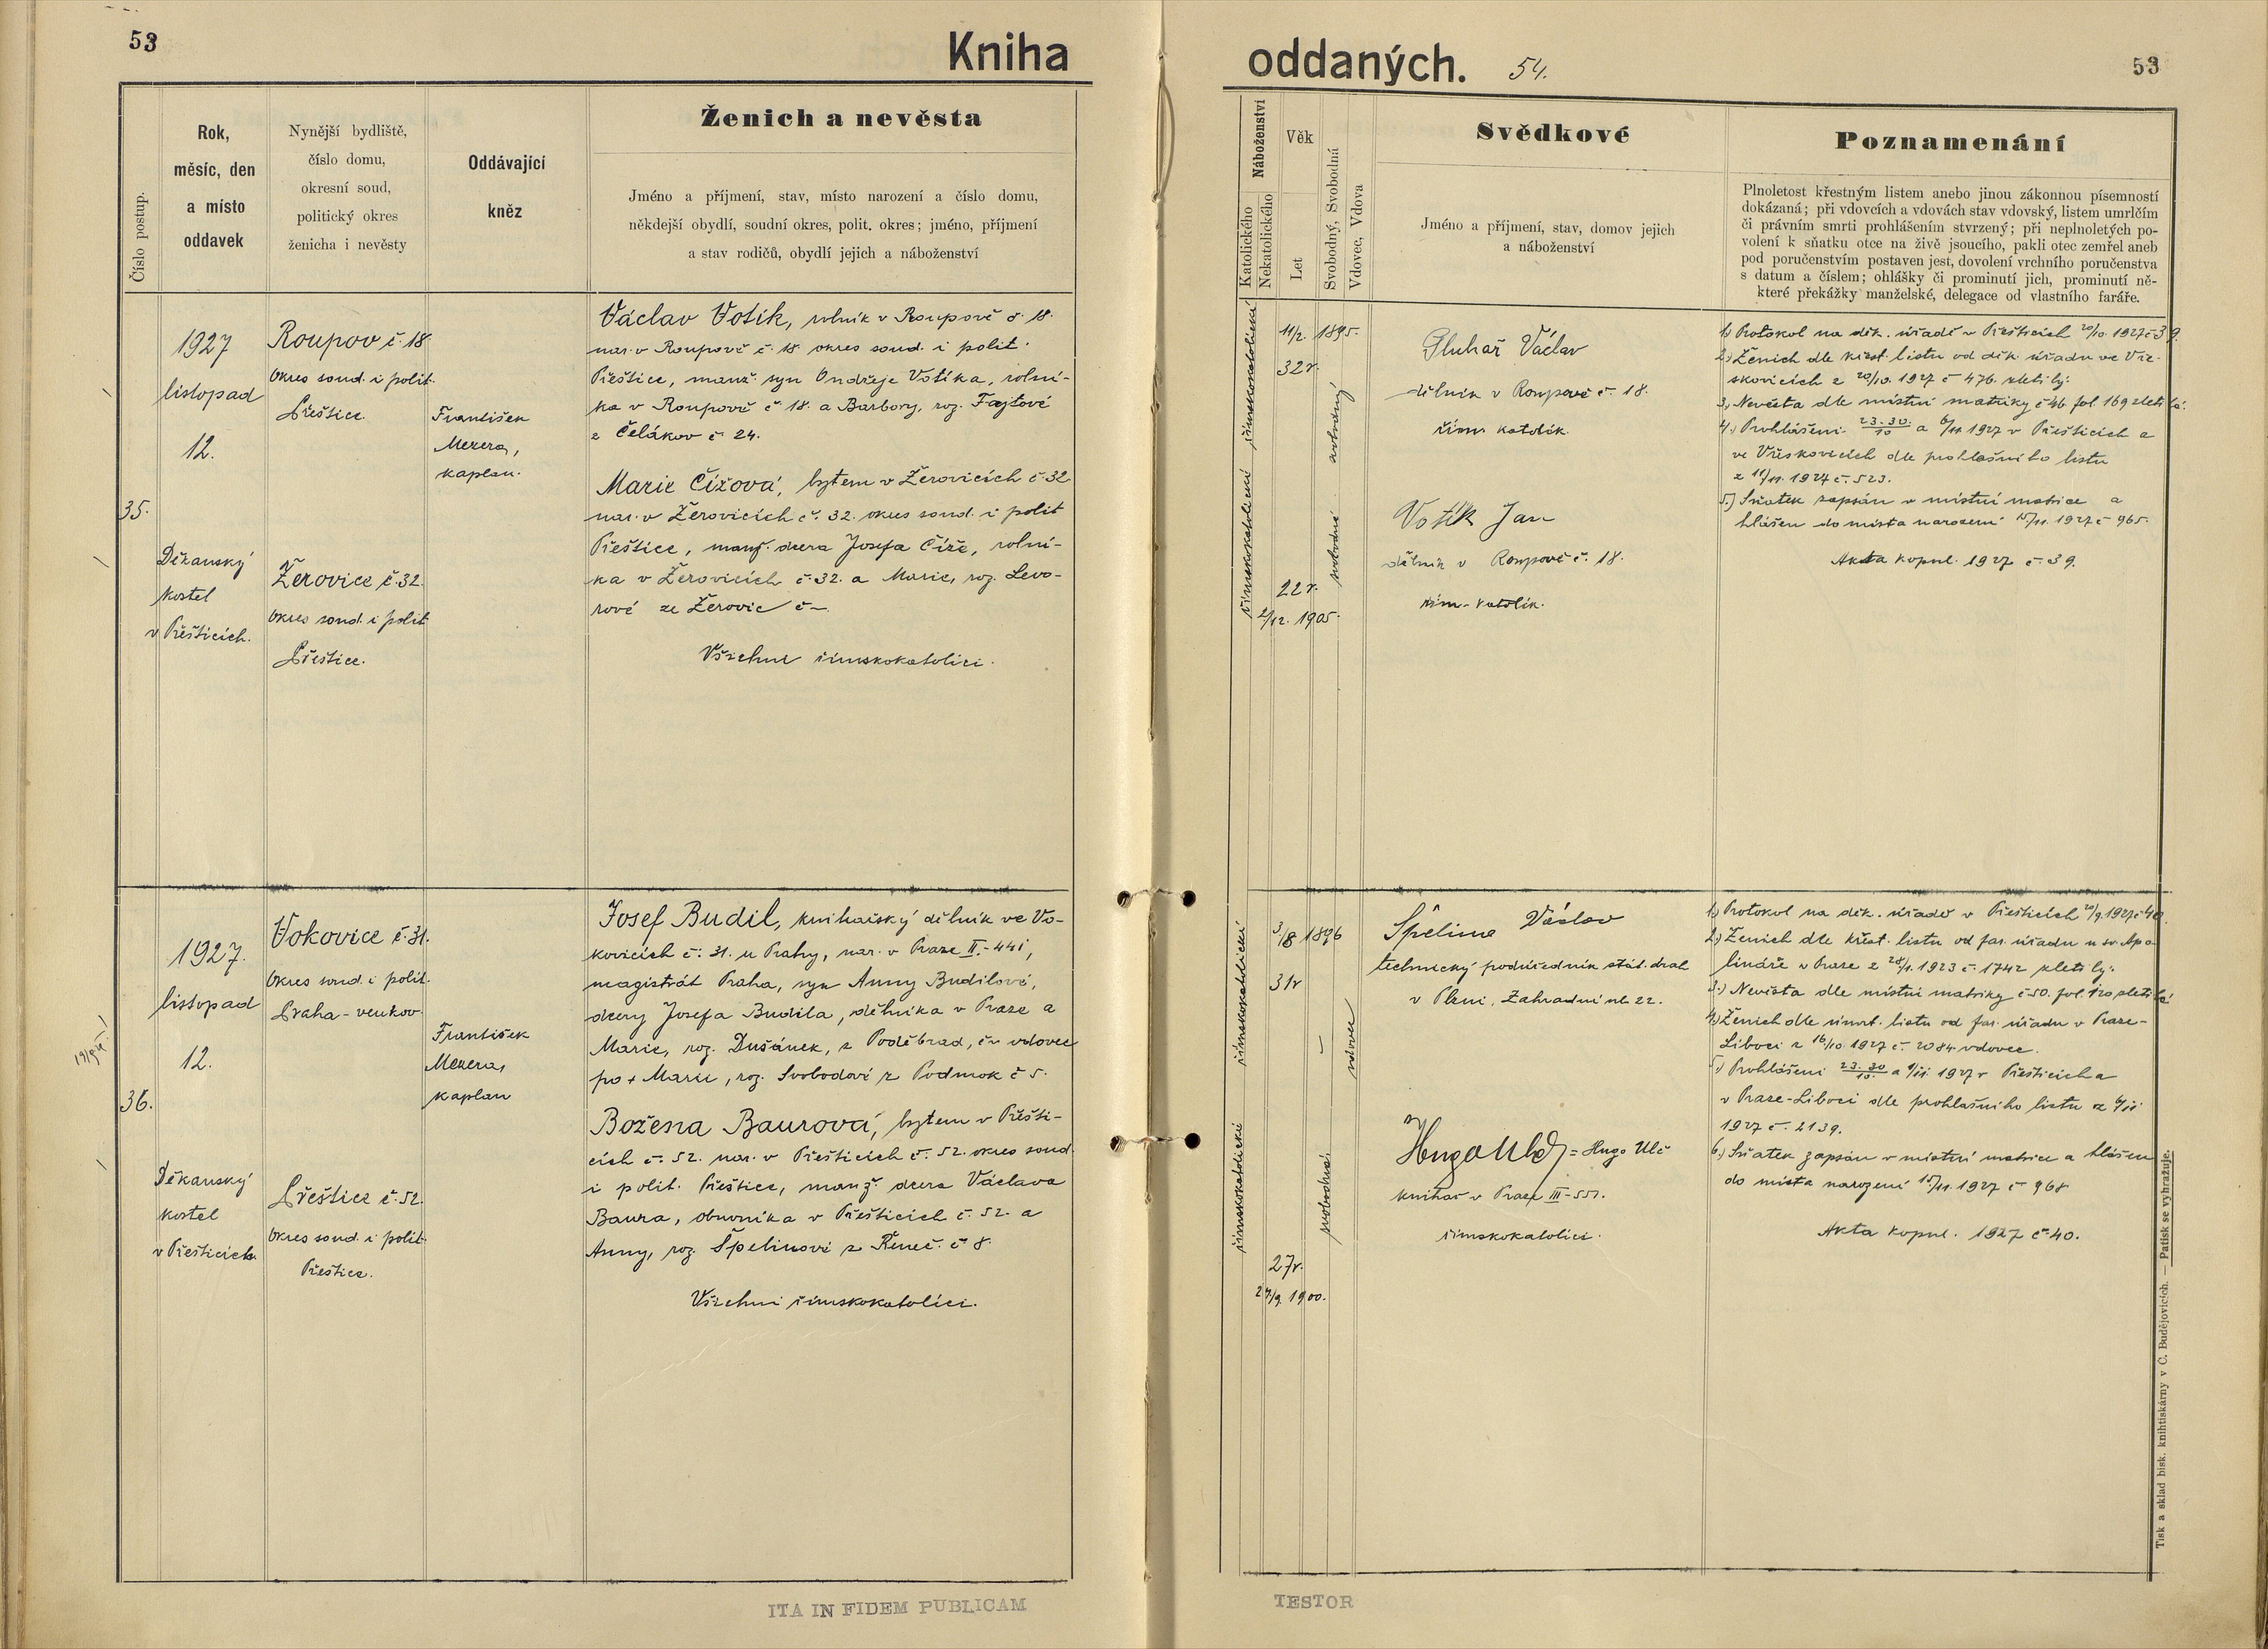 53
Kniha
Číslo postup.
Rok,
měsíc, den
a místo
oddavek
Nynější bydliště,
číslo domu,
okresní soud,
politický okres
ženicha i nevěsty
Oddávající
kněz
Ženich a nevěsta
Jméno a příjmení, stav, místo narození a číslo domu,
někdejší obydlí, soudní okres, polit. okres; jméno, příjmení
a stav rodičů, obydlí jejich a náboženství
35.
1927
listopad
12.
Děkanský
kostel
v Přešticích.
Roupov č. 18.
Okres soud. i polit.
Přeštice.
Žerovice č. 32.
Okres soud. i polit
Přeštice.
František
Mezera,
kaplan.
Václav Votík, rolník v Roupově č. 18.
nar. v Roupově č. 18 okres soud. i polit.
Přeštice, manž. syn Ondřeje Votíka, rolní-
ka v Roupově č. 18. a Barbory, roz. Fajtové
z Čelákov č. 24.
Marie Čížová, bytem v Žerovicích č. 32
nar. v Žerovicích č. 32. okres soud. i polit
Přeštice, manž. dcera Josefa Číže, rolní-
ka v Žerovicích č. 32. a Marie, roz. Levo-
rové ze Žerovic č —
Všichni římskokatolíci.
36.
1927.
listopad
12.
Děkanský
kostel
v Přešticích.
Vokovice č. 31.
Okres soud. i polit.
Praha - venkov.
Přeštice č. 52.
Okres soud. i polit.
Přeštice.
František
Mezera,
kaplan
Josef Budil, knihařský dělník ve Vo-
kovicích č. 31. u Prahy, nar. v Praze II.- 441,
magistrát Praha, syn Anny Budilové,
dcery Josefa Budila, dělníka v Praze a
Marie, roz. Dušánek, z Poděbrad, č — vdovec
po + Marii, roz. Svobodové z Podmok č 5.
Božena Baurová, bytem v Přešti-
cích č. 52. nar. v Přešticích č. 52. okres soud.
i polit. Přeštice, manž. dcera Václava
Baura, obuvníka v Přešticích č. 52. a
Anny, roz. Špelinové z Řeneč. č 8.
Všichni římskokatolíci.
ITA IN FIDEM PUBLICAM
oddaných. 54.
53
Náboženství
Katolického
Nekatolického
Věk
Let
Svobodný, Svobodná
Vdovec, Vdova
Svědkové
Jméno a příjmení, stav, domov jejich
a náboženství
Poznamenání
Plnoletost křestným listem anebo jinou zákonnou písemností
dokázaná; při vdovcích a vdovách stav vdovský, listem umrlčím
či právním smrti prohlášením stvrzený; při neplnoletých po-
volení k sňatku otce na živě jsoucího, pakli otec zemřel aneb
pod poručenstvím postaven jest, dovolení vrchního poručenstva
s datum a číslem; ohlášky či prominutí jich, prominutí ně-
které překážky manželské, delegace od vlastního faráře.
římskokatolické
římskokatolické
11/2. 1895.
32 r.
22 r.
2/12. 1905.
svobodný
svobodná
Gluhař Václav
dělník v Roupově č. 18.
řím. katolík.
Votík Jan
dělník v Roupově č. 18.
řím. katolík.
1.) Protokol na děk. úřadě v Přešticích 20/10. 1927 č 39.
2.) Ženich dle křest. listu od děk. úřadu ve Vře-
skovicích z 20/10. 1927 č 476. zletilý.
3.) Nevěsta dle místní matriky č 46 fol. 169 zletilá.
4.) Prohlášení 23. 30./10 a 6/11 1927 v Přešticích a
ve Vřeskovicích dle prohlášního listu
z 11/11. 1927 č. 523.
5.) Sňatek zapsán v místní matrice a
hlášen do místa narození 15/11. 1927 č 965.
Akta kopul. 1927 č. 39.
římskokatolické
římskokatolické
3/8 1896
31 r
27 r.
27/9. 1900.
vdovec
svobodná
Špelina Václav
technický podúředník stát. drah
v Plzni, Zahradní ul. 22.
Hugo Ulč = Hugo Ulč
knihař v Praze III-551.
římskokatolíci.
1.) Protokol na děk. úřadě v Přešticích 20/9. 1927 č 40.
2.) Ženich dle křest. listu od far. úřadu u sv. Apo-
lináře v Praze z 28/1. 1923 č. 1742 zletilý.
3.) Nevěsta dle místní matriky č 50. fol. 120 zletilá
4.) Ženich dle úmrt. listu od far. úřadu v Praze-
Liboci z 16/10. 1927 č. 2084 vdovec.
5.) Prohlášení 23. 30/10. a 6/11. 1927 v Přešticích a
v Praze-Liboci dle prohlášního listu z 6/11
1927 č. 2139.
6.) Sňatek zapsán v místní matrice a hlášen
do místa narození 15/11. 1927 č 968
Akta kopul. 1927 č. 40.
Tisk a sklad bisk. knihtiskárny v Č. Budějovicích. — Patisk se vyhražuje.
TESTOR